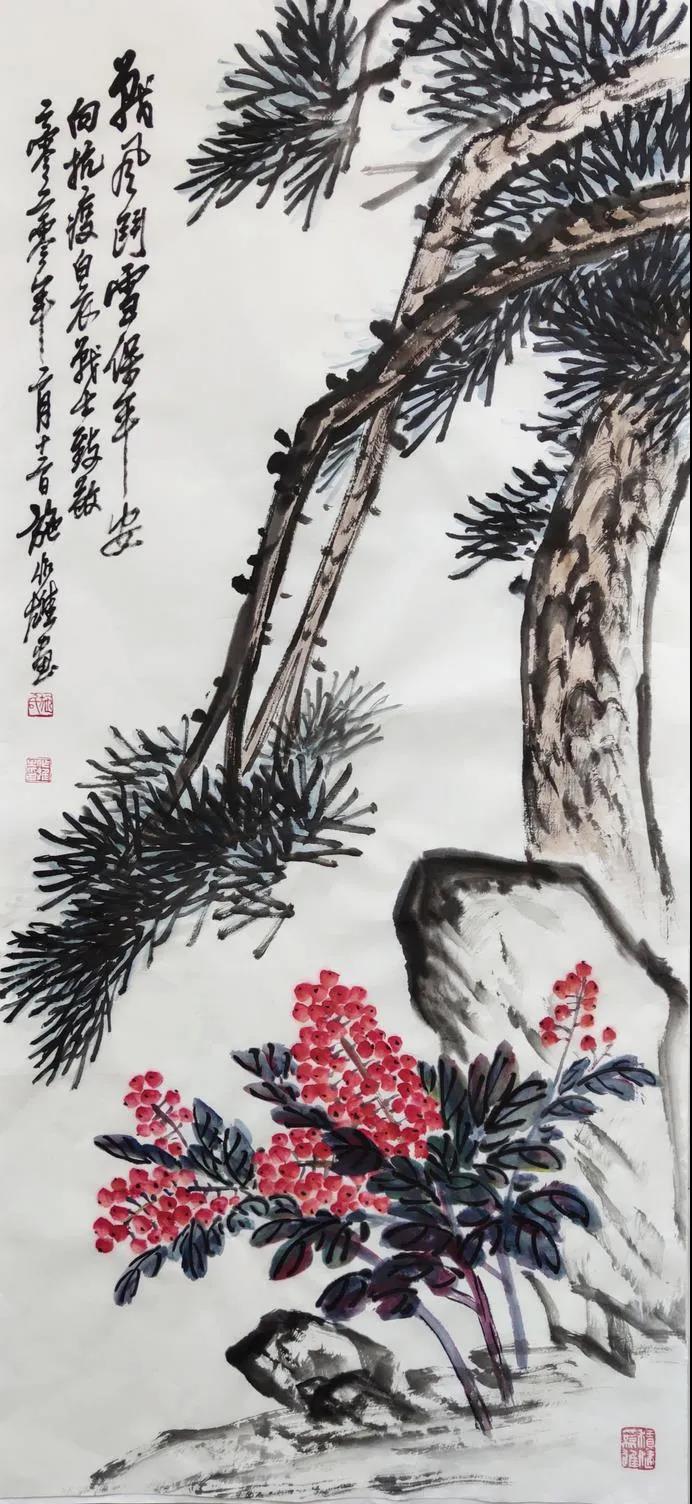 战风鬥雪保平安
向抗疫白衣战士致敬
二零二零年二月十二日施伯雄画